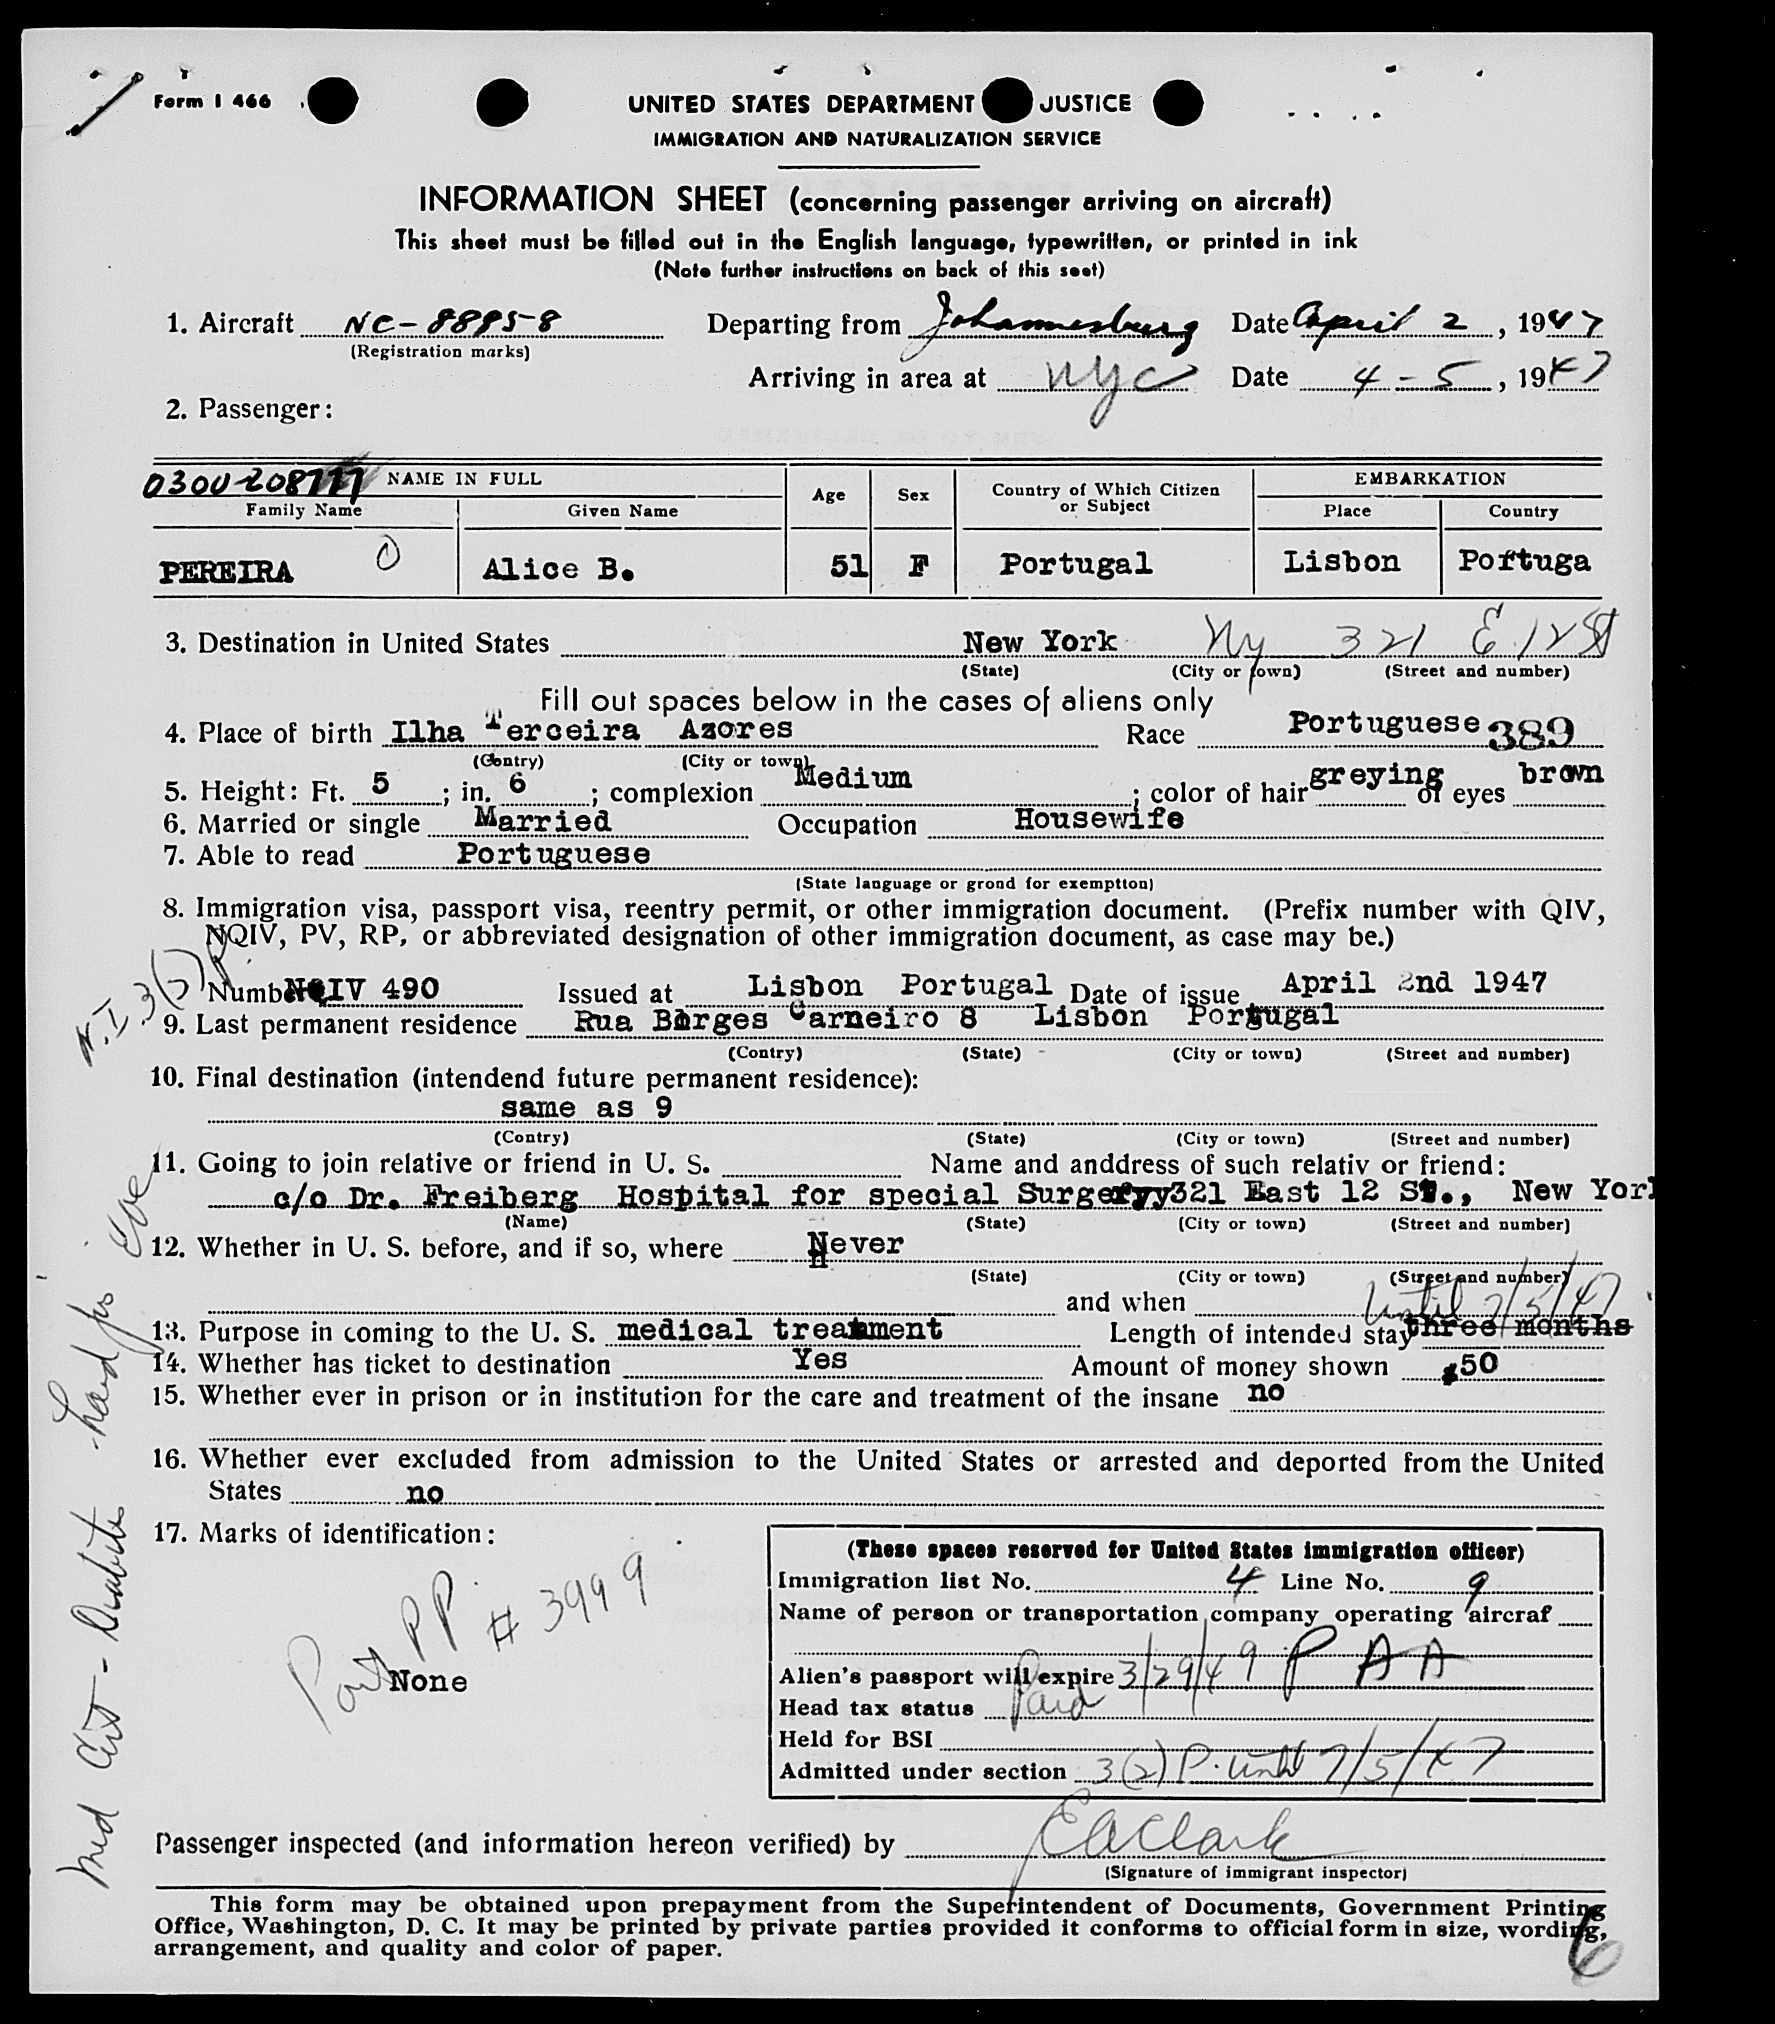 Form I 466
UNITED STATES DEPARTMENT JUSTICE
IMMIGRATION AND NATURALIZATION SERVICE
INFORMATION SHEET (concerning passenger arriving on aircraft)
This sheet must be filled out in the English language, typewritten, or printed in ink
(Note further instructions on back of this seet)
1. Aircraft NC-8895-8 Departing from Johannesburg Date April 2, 1947
(Registration marks)
Arriving in area at NYC Date 4-5, 1947
2. Passenger:
0300-208777 NAME IN FULL Age Sex Country of Which Citizen or Subject EMBARKATION
Family Name Given Name Place Country
PEREIRA Alice B. 51 F Portugal Lisbon Portuga
3. Destination in United States New York Ny 321 E 12 St
(State) (City or town) (Street and number)
Fill out spaces below in the cases of aliens only
4. Place of birth Ilha Terceira Azores Race Portuguese 389
(Contry) (City or town)
5. Height: Ft. 5; in. 6; complexion Medium; color of hair greying of eyes brown
6. Married or single Married Occupation Housewife
7. Able to read Portuguese
(State language or grond for exemption)
8. Immigration visa, passport visa, reentry permit, or other immigration document. (Prefix number with QIV,
NQIV, PV, RP, or abbreviated designation of other immigration document, as case may be.)
Number NQIV 490 Issued at Lisbon Portugal Date of issue April 2nd 1947
9. Last permanent residence Rua Borges Carneiro 8 Lisbon Portugal
(Contry) (State) (City or town) (Street and number)
10. Final destination (intendend future permanent residence):
same as 9
(Contry) (State) (City or town) (Street and number)
11. Going to join relative or friend in U. S. Name and anddress of such relativ or friend:
c/o Dr. Freiberg Hospital for special Surgery 321 East 12 St., New York
(Name) (State) (City or town) (Street and number)
12. Whether in U. S. before, and if so, where Never
(State) (City or town) (Street and number)
and when
Until 7/5/47
13. Purpose in coming to the U. S. medical treatment Length of intended stay three months
14. Whether has ticket to destination Yes Amount of money shown $50
15. Whether ever in prison or in institution for the care and treatment of the insane no
16. Whether ever excluded from admission to the United States or arrested and deported from the United
States no
17. Marks of identification:
Port PP # 3999
None
(These spaces reserved for United States immigration officer)
Immigration list No. 4 Line No. 9
Name of person or transportation company operating aircraf
P A A
Alien's passport will expire 3/29/49
Head tax status Paid
Held for BSI
Admitted under section 3(2) P. Until 7/5/47
Passenger inspected (and information hereon verified) by EAClark
(Signature of immigrant inspector)
This form may be obtained upon prepayment from the Superintendent of Documents, Government Printing
Office, Washington, D. C. It may be printed by private parties provided it conforms to official form in size, wording,
arrangement, and quality and color of paper.
6
Med Cert - Diabetes